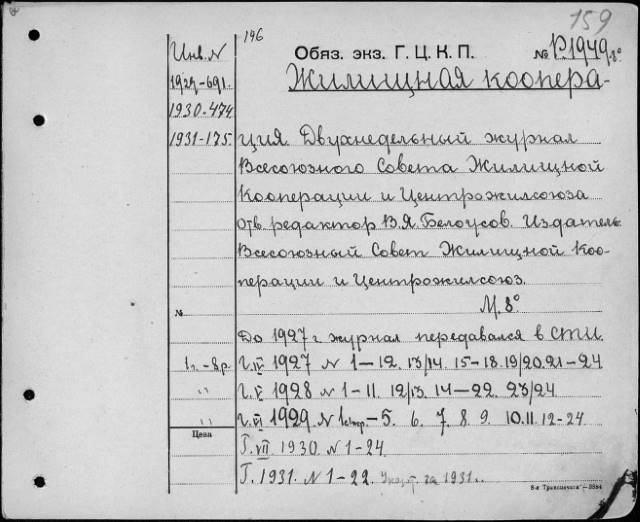 159
Инв. N
146
Обяз. экз. Г. Ц. К. П.
№ Р.1949 8°
1927-691.
Жилищная коопера-
1930-474.
1931-175.
ция. Двухнедельный журнал
Всесоюзного Совета Жилищной
Кооперации и Центрожилсоюза
Отв. редактор В.Я. Белоусов. Издатель
Всесоюзный Совет Жилищной Коо-
перации и Центрожилсоюз.
М. 8°
№
До 1927 г журнал передавался в СТИ.
1 г. - 8 р.
Г. IV 1927 N 1—12. 13/14. 15-18. 19/20. 21-24
" Г. V 1928 N 1-11. 12/13. 14-22. 23/24
" Г. VI 1929 N 1 -5. 6. 7. 8. 9. 10. 11. 12-24
Цена
Г. VII 1930. N 1-24.
Г. 1931. N 1-22. за 1931.